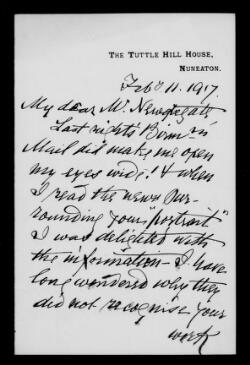 THE TUTTLE HILL HOUSE,
NUNEATON.
Feb 11. 1917.
My dear Mr. Newdegate
Last night's Birm'm
Mail did make me open
my eyes wide! & when
I read the news sur-
rounding your "portrait"
I was delighted with
the information – I have
long wondered why they
did not recognise your
work